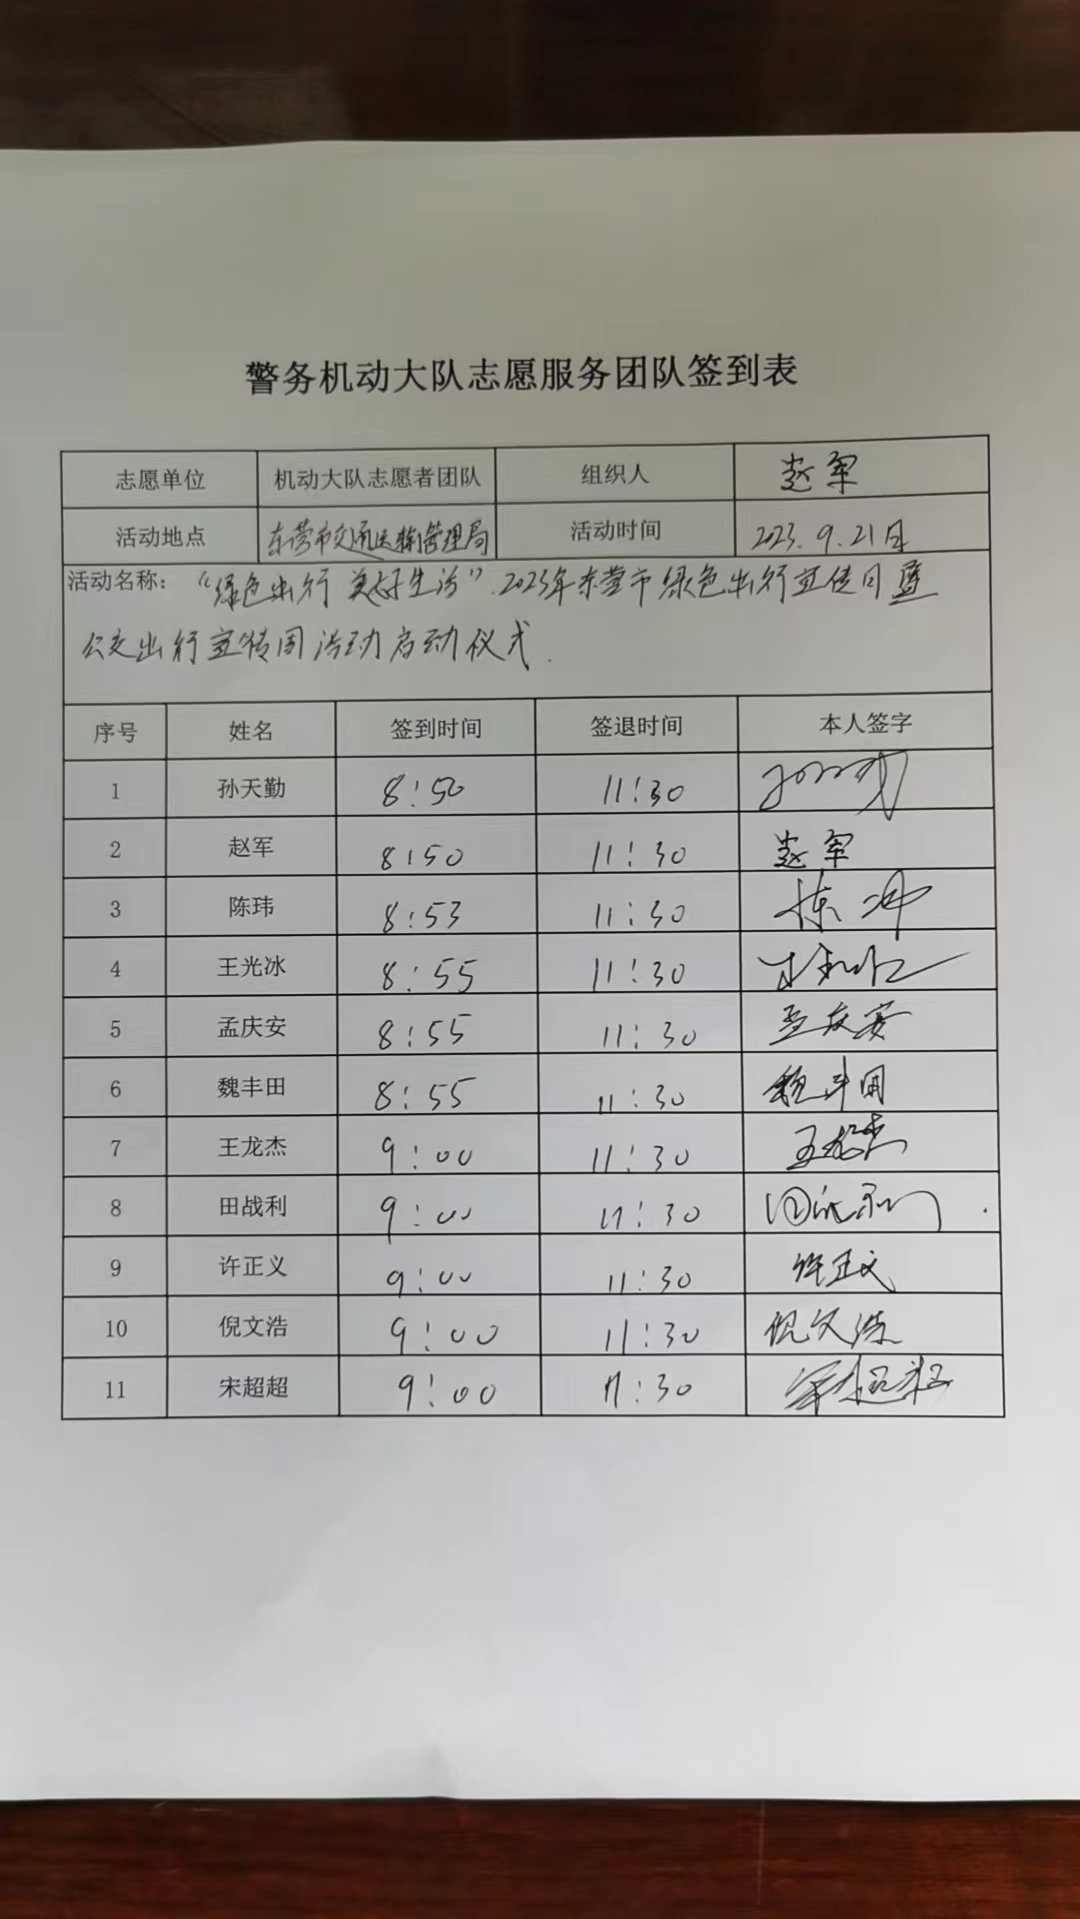 警务机动大队志愿服务团队签到表
志愿单位 机动大队志愿者团队 组织人 赵军
活动地点 东营市交通运输管理局 活动时间 2023.9.21日
活动名称：“绿色出行 美好生活”.2023年东营市绿色出行宣传月暨
公交出行宣传周活动启动仪式.
序号 姓名 签到时间 签退时间 本人签字
1 孙天勤 8:50 11:30
2 赵军 8:50 11:30 赵军
3 陈玮 8:53 11:30
4 王光冰 8:55 11:30
5 孟庆安 8:55 11:30 孟庆安
6 魏丰田 8:55 11:30 魏丰田
7 王龙杰 9:00 11:30 王龙杰
8 田战利 9:00 11:30
9 许正义 9:00 11:30 许正义
10 倪文浩 9:00 11:30 倪文浩
11 宋超超 9:00 11:30 宋超超